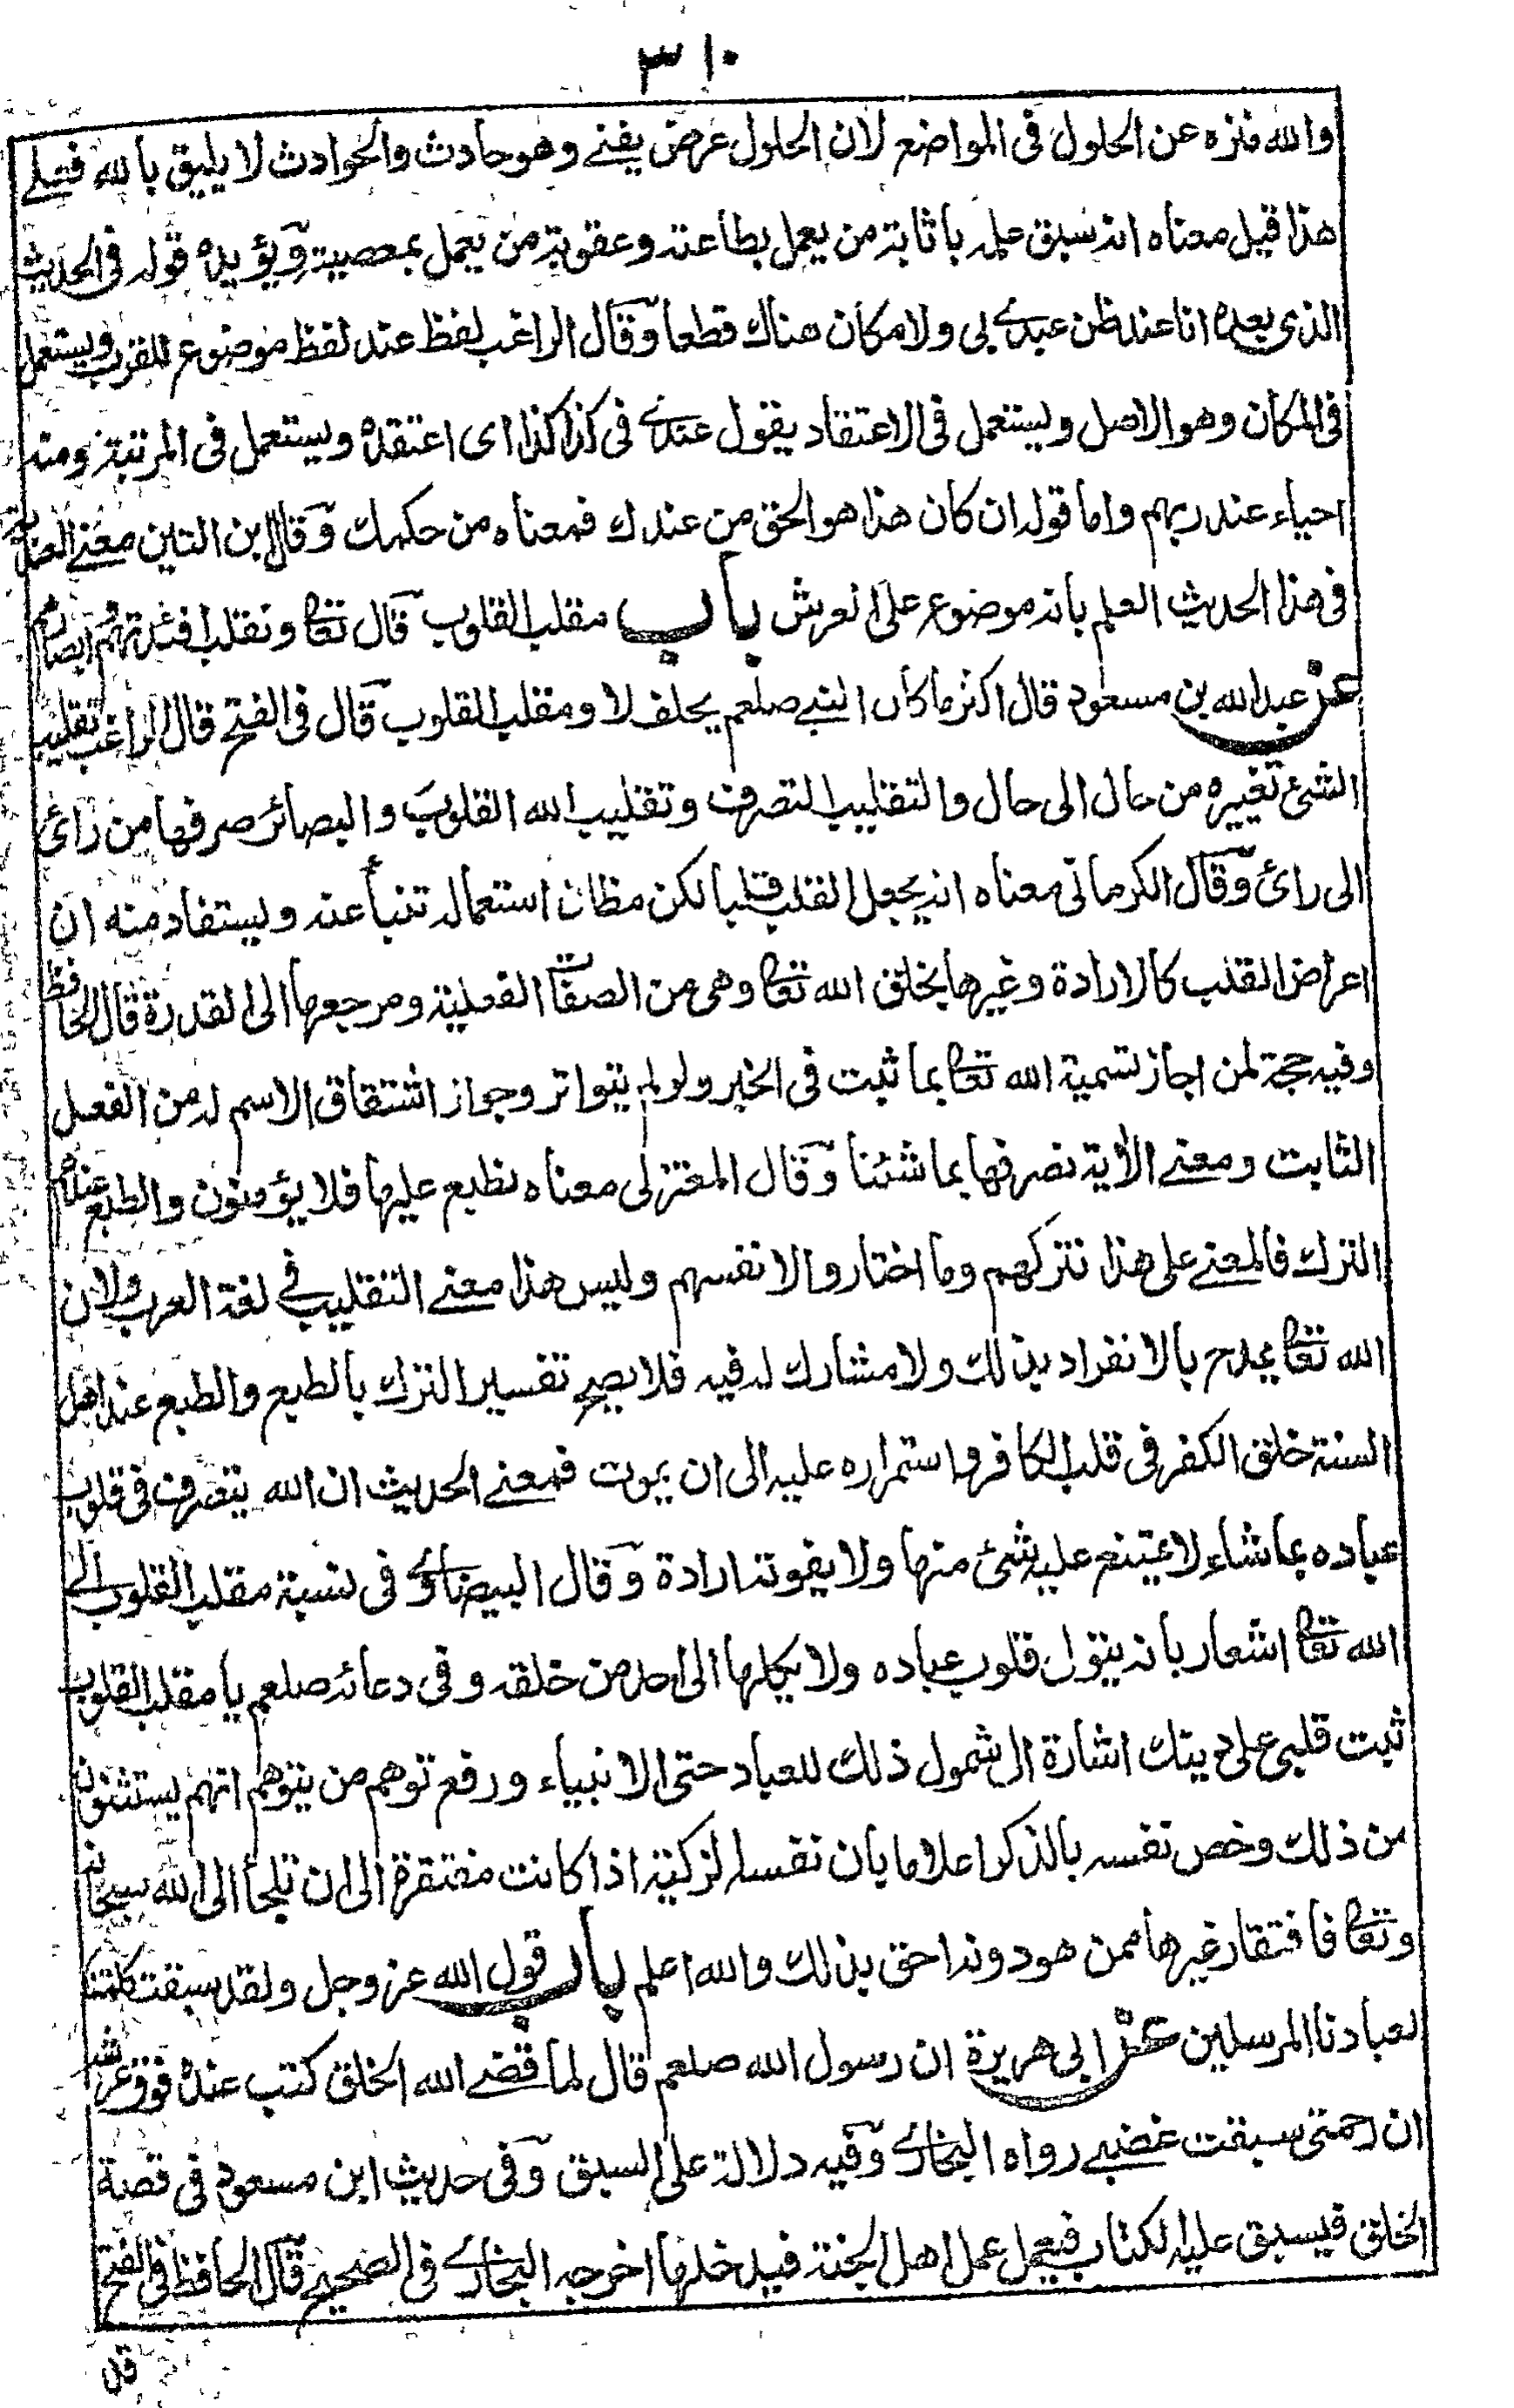 ٣١٠
والله منزه عن الحلول فى المواضع لان الحلول عرض يفنے وهو حادث والحوادث لا يليق بالله فعلے
هذا قيل معناه انه سبق علمه باثابته من يعمل بطاعته وعقوبته من يعمل بمعصيته ويؤيده قوله فى الحديث
الذى بعده انا عند ظن عبدے بى ولا مكان هناك قطعا وقال الراغب لفظ عند لفظ موضوع للقرب ويستعمل
فى المكان وهو الاصل ويستعمل فى الاعتقاد يقول عندے فى كذا كذا اى اعتقده ويستعمل فى المرتبة ومنه
احياء عند ربهم واما قوله ان كان هذا هو الحق من عندك فمعناه من حكمك وقال ابن التين معنے العندية
فى هذا الحديث العلم بانه موضوع على العرش باب مقلب القلوب قال تعا ونقلب افئدتهم وابصارهم
عن عبد الله بن مسعود قال اكثر ما كان النبے صلعم يحلف لا ومقلب القلوب قال فى الفتح قال الراغب تقليب
الشئ تغييره من حال الى حال والتقليب التصرف وتقليب الله القلوب والبصائر صرفها من رائ
الى رائ وقال الكرمانى معناه انه يجعل القلب قلبا لكن مظان استعماله تنبأ عنه ويستفاد منه ان
اعراض القلب كالارادة وغيرها بخلق الله تعا وهى من الصفات الفعلية ومرجعها الى القدرة قال الحافظ
وفيه حجة لمن اجاز تسمية الله تعا بما ثبت فى الخبر ولو لم يتواتر وجواز اشتقاق الاسم له من الفعل
الثابت ومعنے الأية نصرفها بما شئنا وقال المعتزلى معناه نطبع عليها فلا يؤمنون والطبع عندهم
الترك فالمعنے على هذا نتركهم وما اختاروا لانفسهم وليس هذا معنے التقليب فے لغة العرب ولان
الله تعا يمدح بالانفراد بذلك ولا مشارك له فيه فلا يصح تفسير الترك بالطبع والطبع عند اهل
السنة خلق الكفر فى قلب الكافر واستمراره عليه الى ان يموت فمعنے الحديث ان الله يتصرف فى قلوب
عباده بما شاء لا يمتنع عليه شئ منها ولا يفوته ارادة وقال البيضاوے فى نسبة مقلب القلوب الى
الله تعا اشعار بانه يتول قلوب عباده ولا يكلها الى احد من خلقه وفى دعائه صلعم يا مقلب القلوب
ثبت قلبى على دينك اشارة الى شمول ذلك للعباد حتى الانبياء ورفع توهم من يتوهم انهم يستثنون
من ذلك وخص نفسه بالذكر اعلاما بان نفسه الزكية اذا كانت مفتقرة الى ان تلجأ الى الله سبحانه
وتعا فافتقار غيرها ممن هو دونه احق بذلك والله اعلم باب قول الله عز وجل ولقد سبقت كلمتنا
لعبادنا المرسلين عن ابى هريرة ان رسول الله صلعم قال لما قضے الله الخلق كتب عنده فوق عرشه
ان رحمتى سبقت غضبے رواه البخارے وفيه دلالة على السبق وفى حديث ابن مسعود فى قصة
الخلق فيسبق عليه الكتاب فيعمل عمل اهل الجنة فيدخلها اخرجه البخارے فى الصحيح قال الحافظ فى الفتح
قال